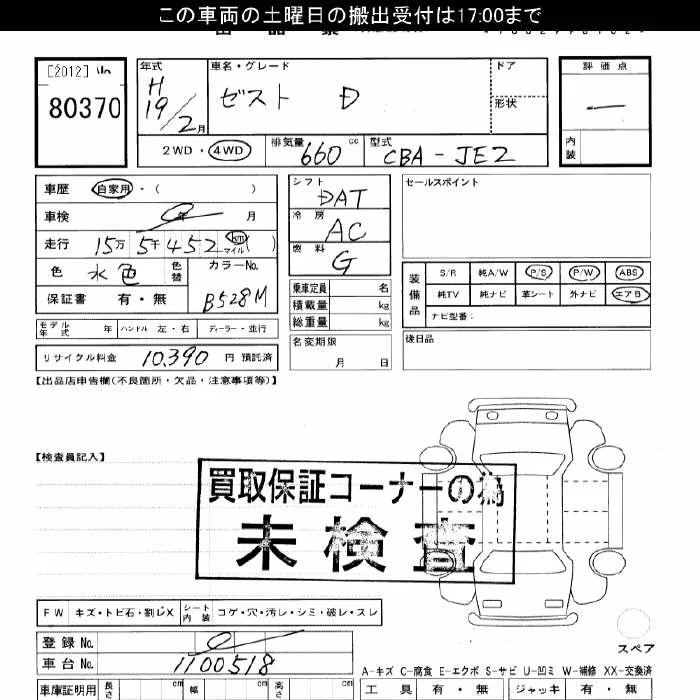 この車両の土曜日の搬出受付は17:00まで
[2012]
80370
年式
H 19/2月
車名・グレード
ゼスト D
ドア
形状
評価点
内装
2WD・4WD
排気量 660 cc
型式 CBA-JE2
車歴 自家用・( )
車検 0年 月
走行 15万5千452 km マイル ( )
色 水色
色替
カラーNo. B528M
保証書 有・無
シフト DAT
冷房 AC
燃料 G
乗車定員 名
積載量 kg
総重量 kg
名変期限 月 日
セールスポイント
装備品
S/R 純A/W P/S P/W ABS
純TV 純ナビ 革シート 外ナビ エアB
ナビ型番：
後日品
モデル年式 年 ハンドル 左・右 ディーラー・並行
リサイクル料金 10,390 円 預託済
【出品店申告欄(不良箇所・欠品・注意事項等)】
【検査員記入】
買取保証コーナーの為
未検査
FW キズ・トビ石・割レX シート内装 コゲ・穴・汚レ・シミ・破レ・スレ
登録No. 0
車台No. 1100518
スペア
A-キズ C-腐食 E-エクボ S-サビ U-凹ミ W-補修 XX-交換済
車庫証明用 長さ cm 幅 cm 高さ cm
工具 有・無 ジャッキ 有・無